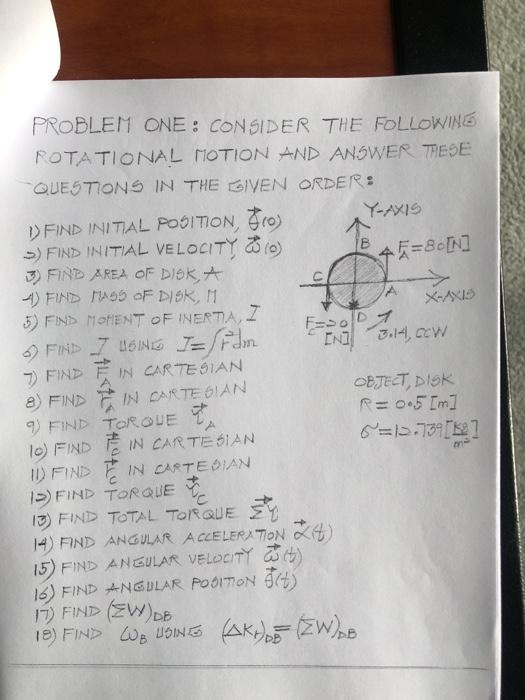 PROBLEM ONE: CONSIDER THE FOLLOWING
ROTATIONAL MOTION AND ANSWER THESE
QUESTIONS IN THE GIVEN ORDER:
1) FIND INITIAL POSITION, θ⃗(0)
2) FIND INITIAL VELOCITY, ω⃗(0)
3) FIND AREA OF DISK, A
4) FIND MASS OF DISK, M
5) FIND MOMENT OF INERTIA, I
6) FIND I USING I=∫r²dm
7) FIND F⃗_A IN CARTESIAN
8) FIND r⃗_A IN CARTESIAN
9) FIND TORQUE τ⃗_A
10) FIND F⃗_C IN CARTESIAN
11) FIND r⃗_C IN CARTESIAN
12) FIND TORQUE τ⃗_C
13) FIND TOTAL TORQUE Στ⃗
14) FIND ANGULAR ACCELERATION α⃗(t)
15) FIND ANGULAR VELOCITY ω⃗(t)
16) FIND ANGULAR POSITION θ⃗(t)
17) FIND (ΣW)DB
18) FIND ωB USING (ΔKr)DB=(ΣW)DB
Y-AXIS
B
F_A=80[N]
C
A
X-AXIS
F_C=20
[N]
D
3.14, CCW
OBJECT, DISK
R=0.5[m]
σ=12.739[kg/m²]